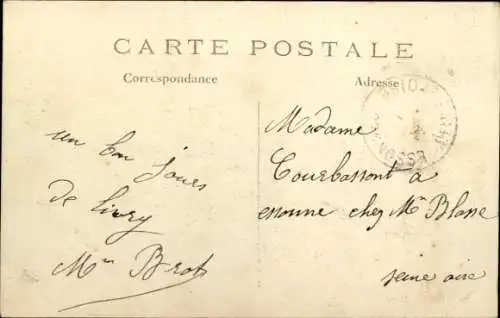 CARTE POSTALE
Correspondance
Adresse
un bon jours
de livry
Mme Brot
Madame
Courbassont à
essonne chez Mr Blase
seine oise